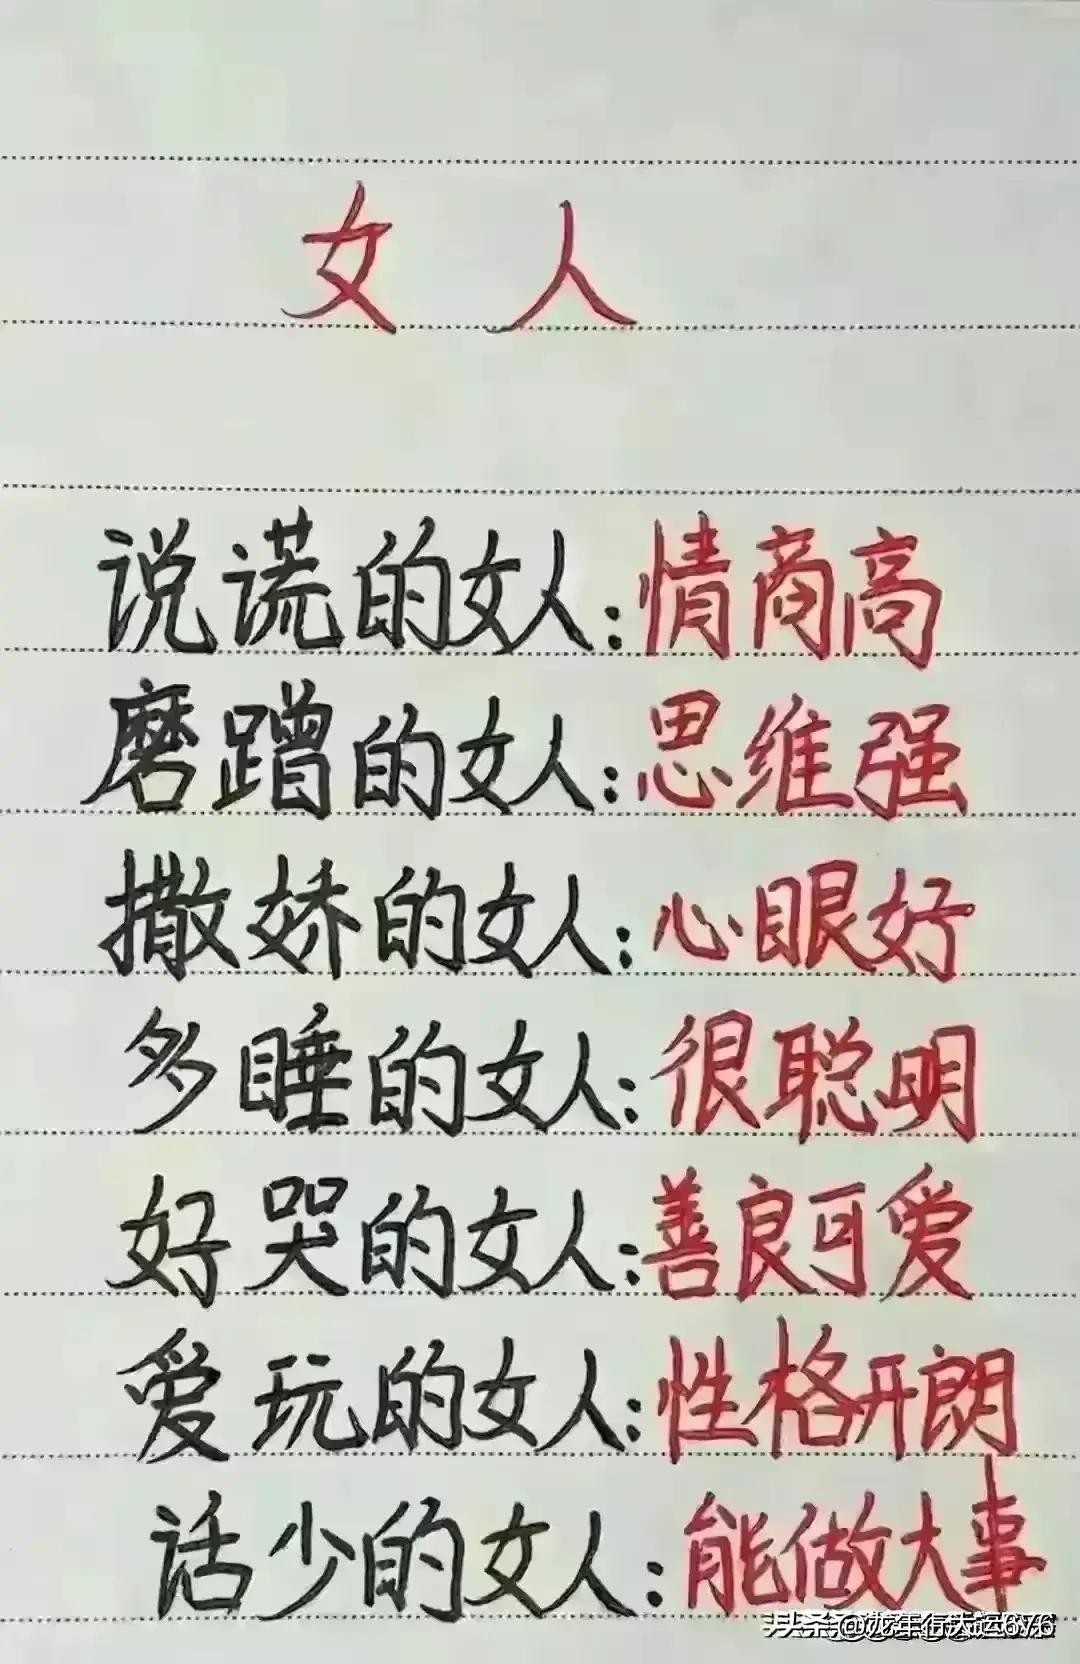 女人
说谎的女人:情商高
磨蹭的女人:思维强
撒娇的女人:心眼好
多睡的女人:很聪明
好哭的女人:善良可爱
爱玩的女人:性格开朗
话少的女人:能做大事
头条 @龙年行大运676